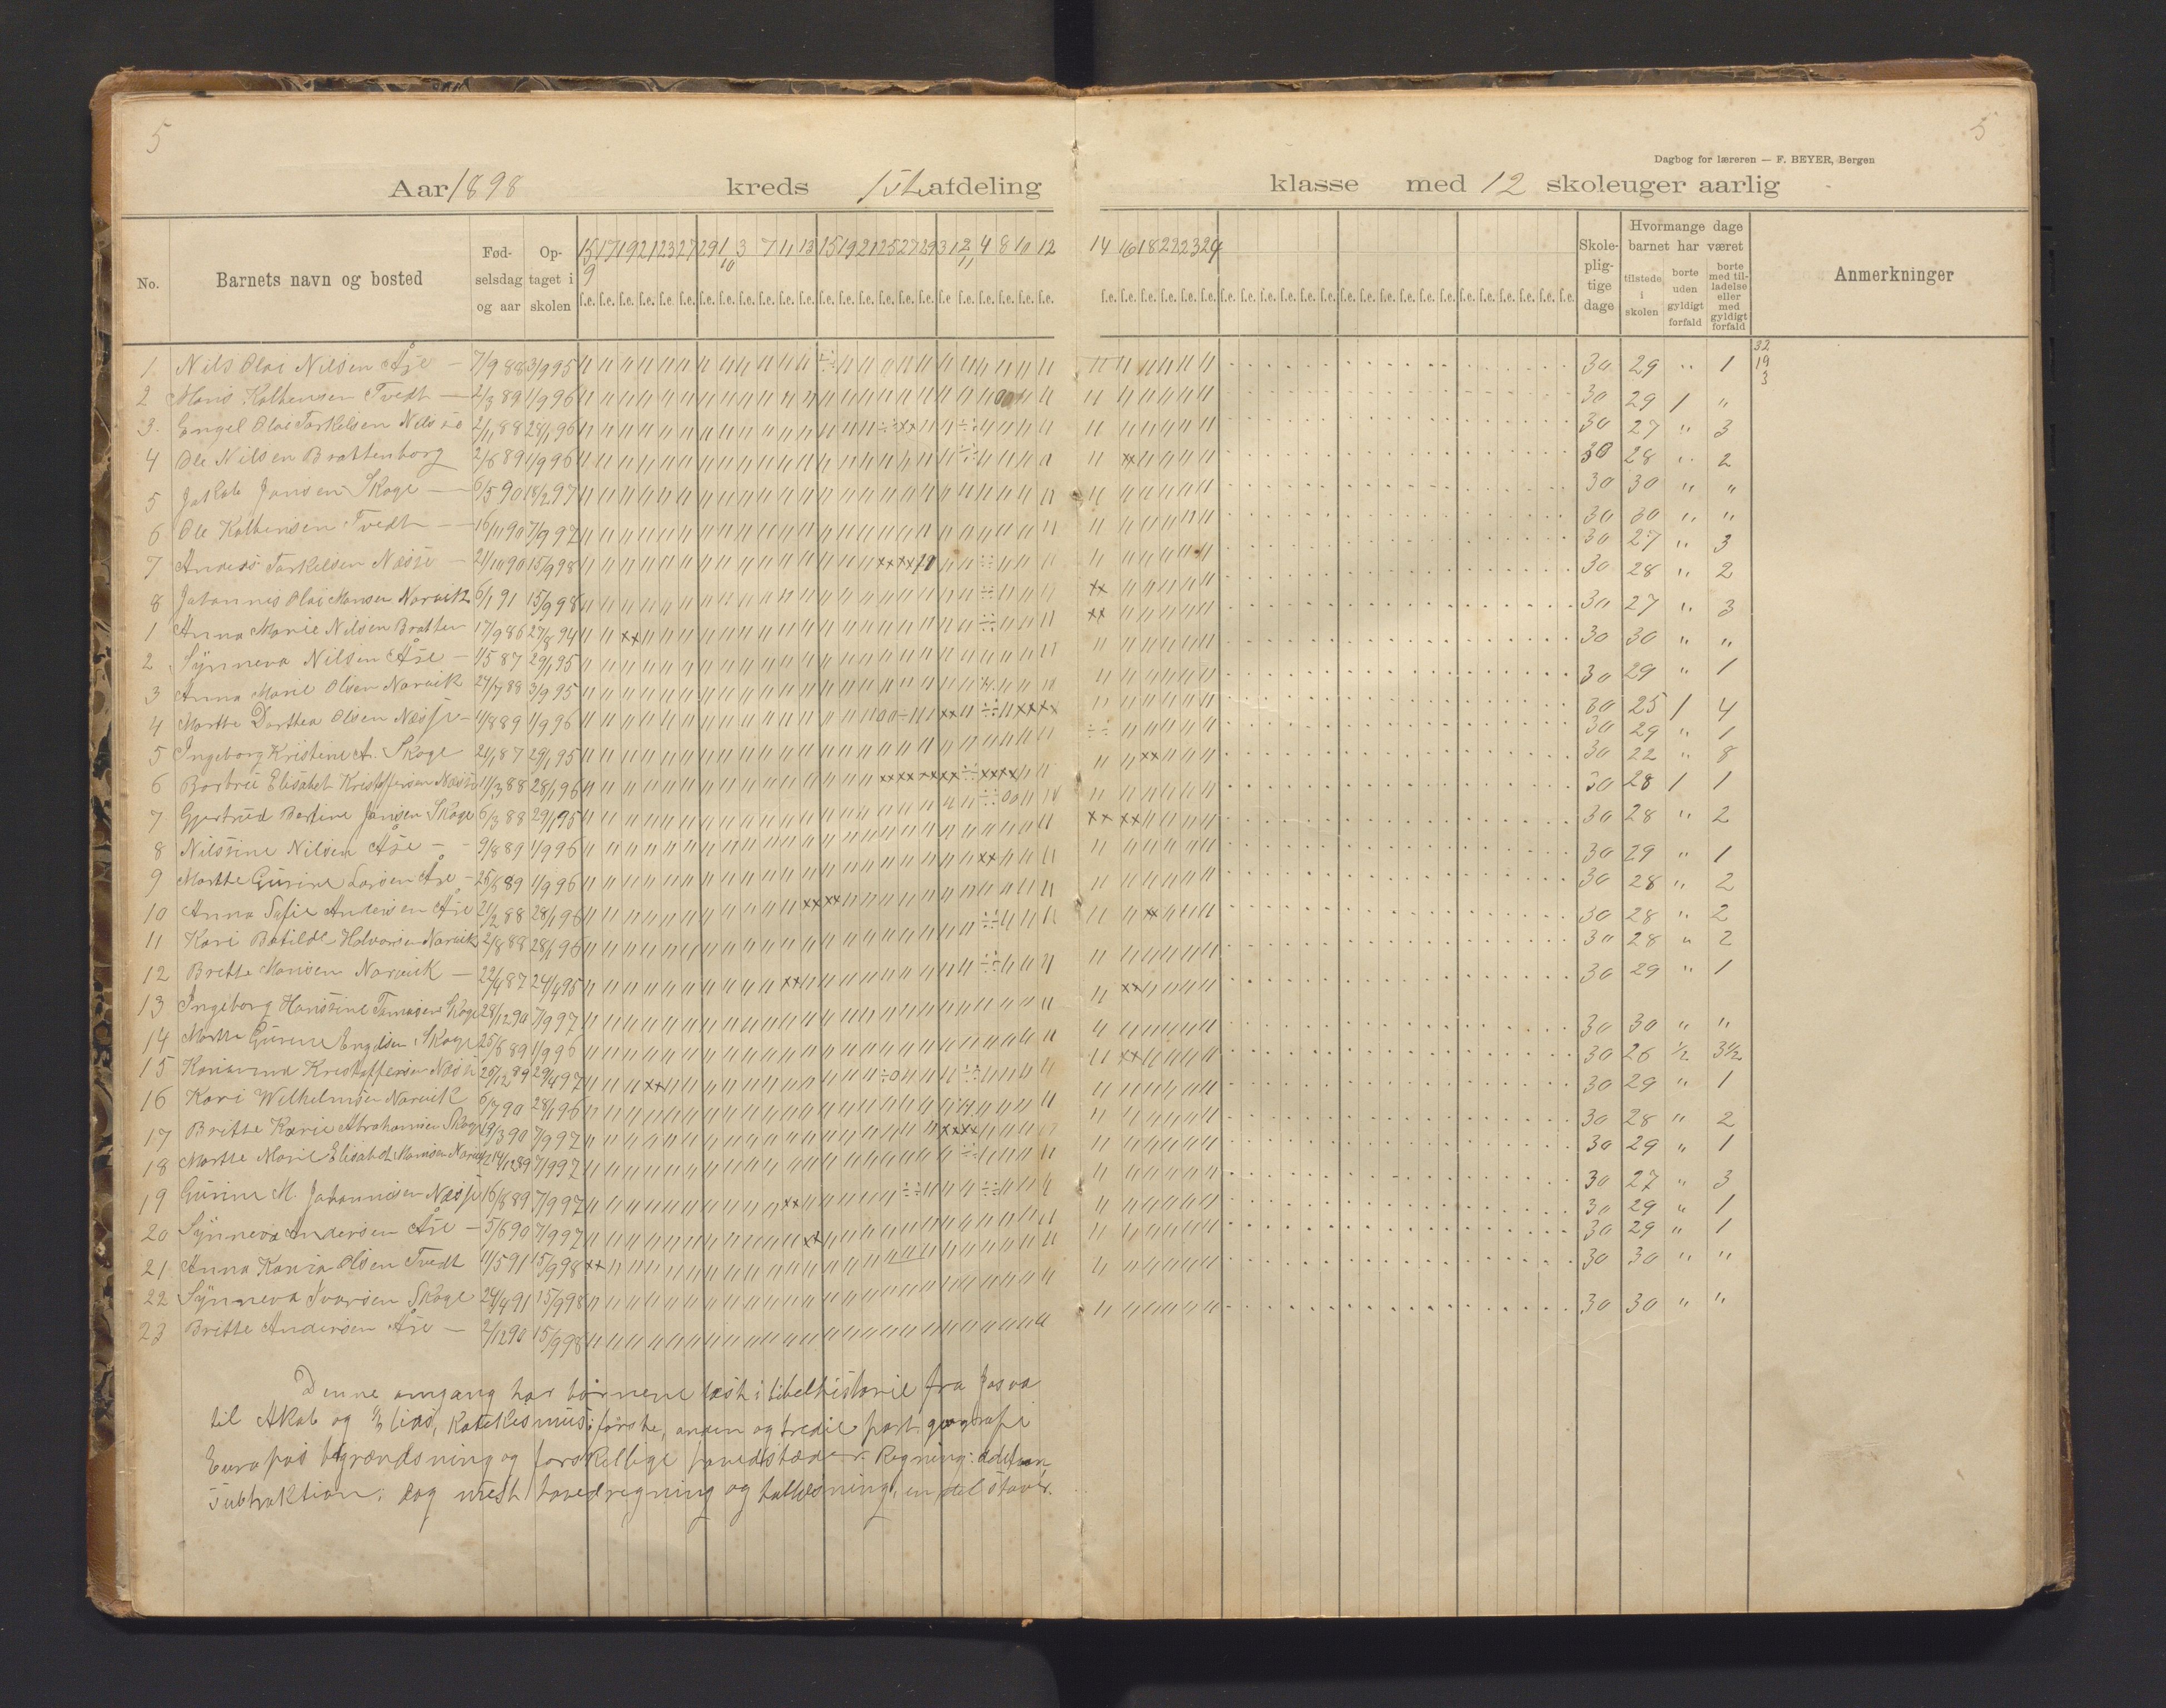 5
5
Dagbog for læreren — F. BEYER, Bergen
Aar 1898 kreds 1ste afdeling klasse med 12 skoleuger aarlig
No. Barnets navn og bosted Fødselsdag og aar Optaget i skolen 15/9 17 19 21 23 27 29 1/10 3 7 11 13 15 19 21 25 27 29 31 2/11 4 8 10 12 14 16 18 22 23 24 Skolepligtige dage Hvormange dage barnet har været tilstede i skolen borte uden gyldigt forfald borte med tilladelse eller med gyldigt forfald Anmerkninger
1 Nils Olai Nilsen Åse — 7/9 88 3/9 95 30 29 " 1 32 19 3
2 Mons Kolbensen Tvedt — 2/3 89 1/9 96 30 29 1 "
3 Engel Olai Torkelsen 2/11 88 28/1 96 30 27 " 3
4 Ole Nilsen Brattenborg 2/6 89 1/9 96 30 28 " 2
5 Jakob Jansen Skoge — 6/5 90 18/2 97 30 30 " "
6 Ole Kolbensen Tvedt — 16/11 90 7/9 97 30 30 " "
7 Anders Torkelsen Næsse — 21/10 90 15/9 98 30 27 " 3
8 Johannes Olai Monsen Narvik 6/1 91 15/9 98 30 28 " 2
1 Anna Marie Nilsen Bratten 17/9 86 27/8 94 30 27 " 3
2 Synneva Nilsen Åse — 1/5 87 29/1 95 30 30 " "
3 Anna Marie Olsen Narvik 24/7 88 3/9 95 30 29 " 1
4 Marthe Dorthea Olsen Næsse — 11/8 89 1/9 96 30 25 1 4
5 Ingeborg Kristine A. Skoge 21/1 87 29/1 95 30 29 " 1
6 Elisabet Kristoffersen Næsse 11/3 88 28/1 96 30 22 " 8
7 Gjertrud Bertine Jansen Skoge 6/3 88 29/1 95 30 28 1 1
8 Nilsine Nilsen Åse — 9/8 89 1/9 96 30 28 " 2
9 Marthe Gurine Larsen Åse — 25/6 89 1/9 96 30 29 " 1
10 Anna Sofie Andersen Åse 21/2 88 28/1 96 30 28 " 2
11 Kari Botilde Halvorsen Narvik 2/8 88 28/1 96 30 28 " 2
12 Britte Monsen Narvik — 22/4 87 24/4 95 30 28 " 2
13 Ingeborg Hanssine Skoge 28/12 90 7/9 97 30 29 " 1
14 Marthe Gurine Engelsen Skoge 25/6 89 1/9 96 30 30 " "
15 Kristoffersen Næsse 26/12 89 29/4 97 30 26 1/2 3 1/2
16 Kari Wilhelmsen Narvik 6/7 90 28/1 96 30 29 " 1
17 Britte Karie Abrahamsen Skoge 19/3 90 7/9 97 30 28 " 2
18 Marthe Marie Elisabet Monsen Narvik 14/12 89 7/9 97 30 29 " 1
19 Gurine M. Johannesen Næsse 16/8 89 7/9 97 30 27 " 3
20 Synneva Andersen Åse — 5/6 90 7/9 97 30 29 " 1
21 Anna Karia Olsen Tvedt 11/5 91 15/9 98 30 29 " 1
22 Synneva Ivarsen Skoge 24/4 91 15/9 98 30 30 " "
23 Britte Andersen Åse — 2/12 90 15/9 98 30 30 " "
Denne omgang har børnene læst i bibelhistorie fra Josva
til Akab og Elias, Katekismus: første, anden og tredie part. geografi
Europas begrændsning og forskellige hovedstæder. Regning: addition,
subtraktion; dog mest hovedregning og tallæsning, en del staver.